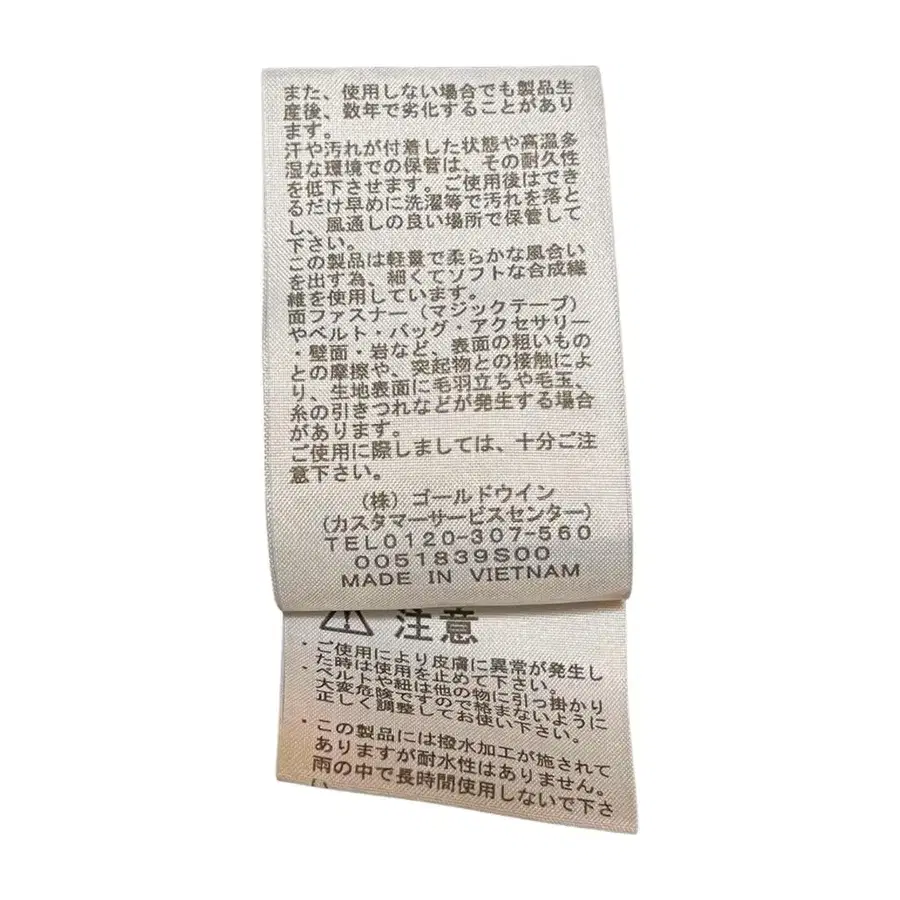 また、使用しない場合でも製品生
産後、数年で劣化することがあり
ます。
汗や汚れが付着した状態や高温多
湿な環境での保管は、その耐久性
を低下させます。ご使用後はでき
るだけ早めに洗濯等で汚れを落と
し、風通しの良い場所で保管して
下さい。
この製品は軽量で柔らかな風合い
を出す為、細くてソフトな合成繊
維を使用しています。
面ファスナー（マジックテープ）
やベルト・バッグ・アクセサリー
・壁面・岩など、表面の粗いもの
との摩擦や、突起物との接触によ
り、生地表面に毛羽立ちや毛玉、
糸の引きつれなどが発生する場合
があります。
ご使用に際しましては、十分ご注
意下さい。
（株）ゴールドウイン
(カスタマーサービスセンター)
TEL0120-307-560
0051839S00
MADE IN VIETNAM
注意
・ご使用により皮膚に異常が発生し
た時は使用を止めて下さい。
・ベルトや紐は他の物に引っ掛かり
大変危険ですので絡まないように
正しく調整してお使い下さい。
・この製品には撥水加工が施されて
ありますが耐水性はありません。
雨の中で長時間使用しないで下さ
い